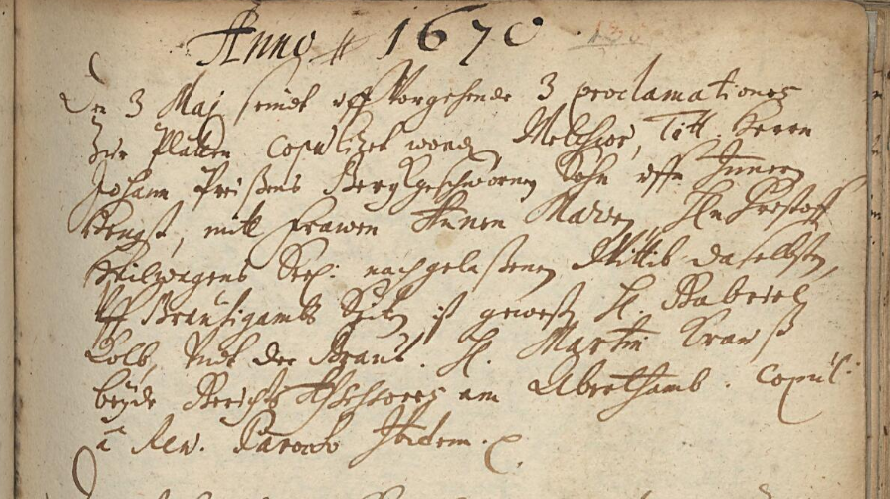 Anno 1670
Den 3 Maj seindt uff Vorgehende 3 proclamationes
Zur Platten Copulieret worden Melchior, Titt. Herrn
Johann Preißens Berggeschwornen Sohn uffn Jrrgang
Hengst, mitt Frawen Annen Marien, Hn Christoff
Heilwagens Seel: nachgelaßenen Wittib daselbsten,
Uff Breütigambs Seiten ist geweßen H. Gabriel
Kolb, Undt der Braut. H. Martin Krauß
beyde Gerichts Assessores am Abrethamb. Copul:
â Rev. Parocho Ibidem.